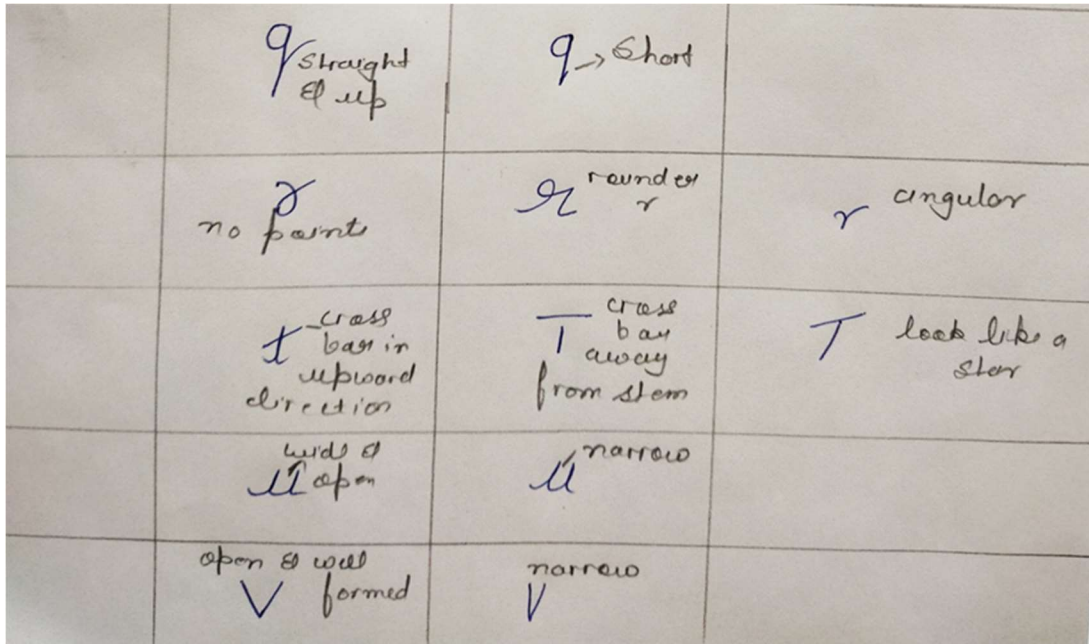 q straight
& up
q → short
r
no point
r rounder
r
r angular
t cross
bar in
upward
direction
T cross
bay
away
from stem
T look like a
star
wide &
u open
u narrow
open & well
V formed
narrow
V